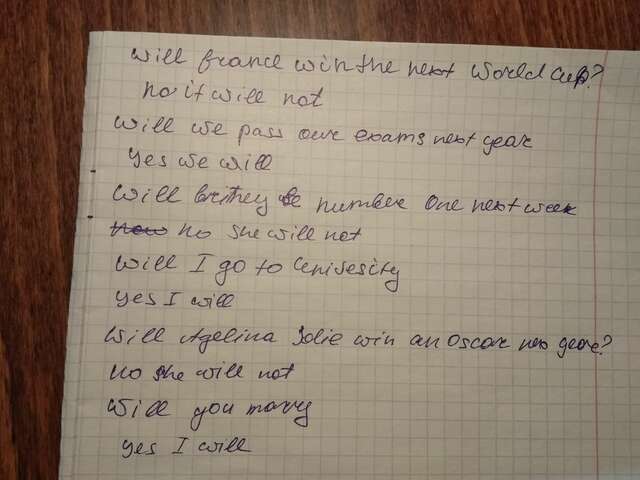 Will france win the next World Cup?
no it will not
Will we pass our exams next year
Yes we will
Will britney be number One next week
no she will not
Will I go to Univesity
yes I will
Will Agelina Jolie win an Oscar nex year?
no she will not
Will you marry
yes I will